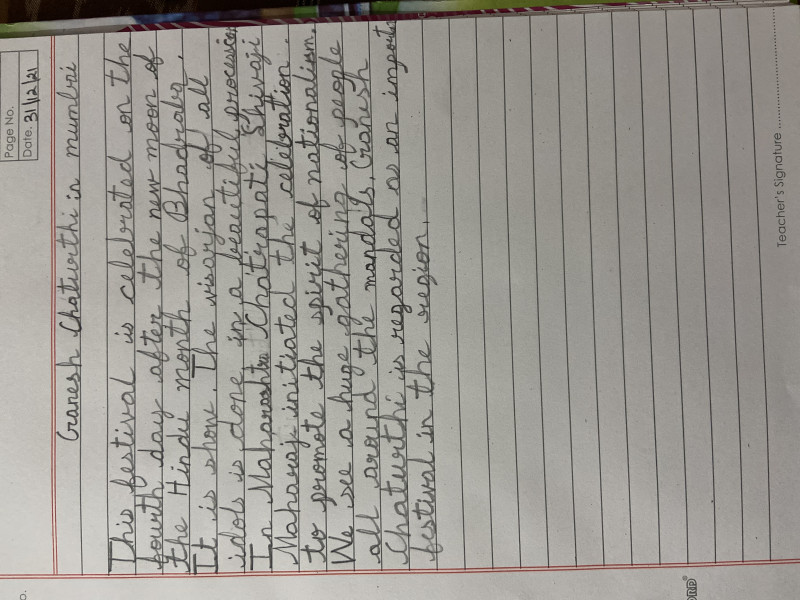 Page No.
Date. 31/12/21
Ganesh Chaturthi in mumbai
This festival is celebrated on the
fourth day after the new moon of
the Hindu month of Bhadraba.
It is show. The visarjan of all
idols is done in a beautiful procession
In Maharashtra Chatrapati Shivaji
Maharaj initiated the celebration.
to promote the spirit of nationalism.
We see a huge gathering of people
all around the mandals. Ganesh
Chaturthi is regarded as an importa
festival in the region.
Teacher's Signature